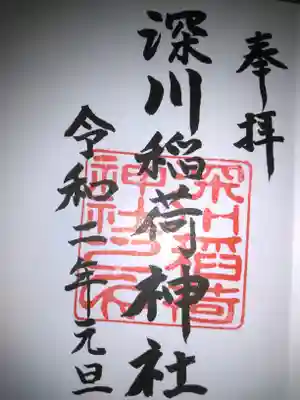 奉拝
深川稲荷神社
令和二年元旦
深川稲荷
神社之印